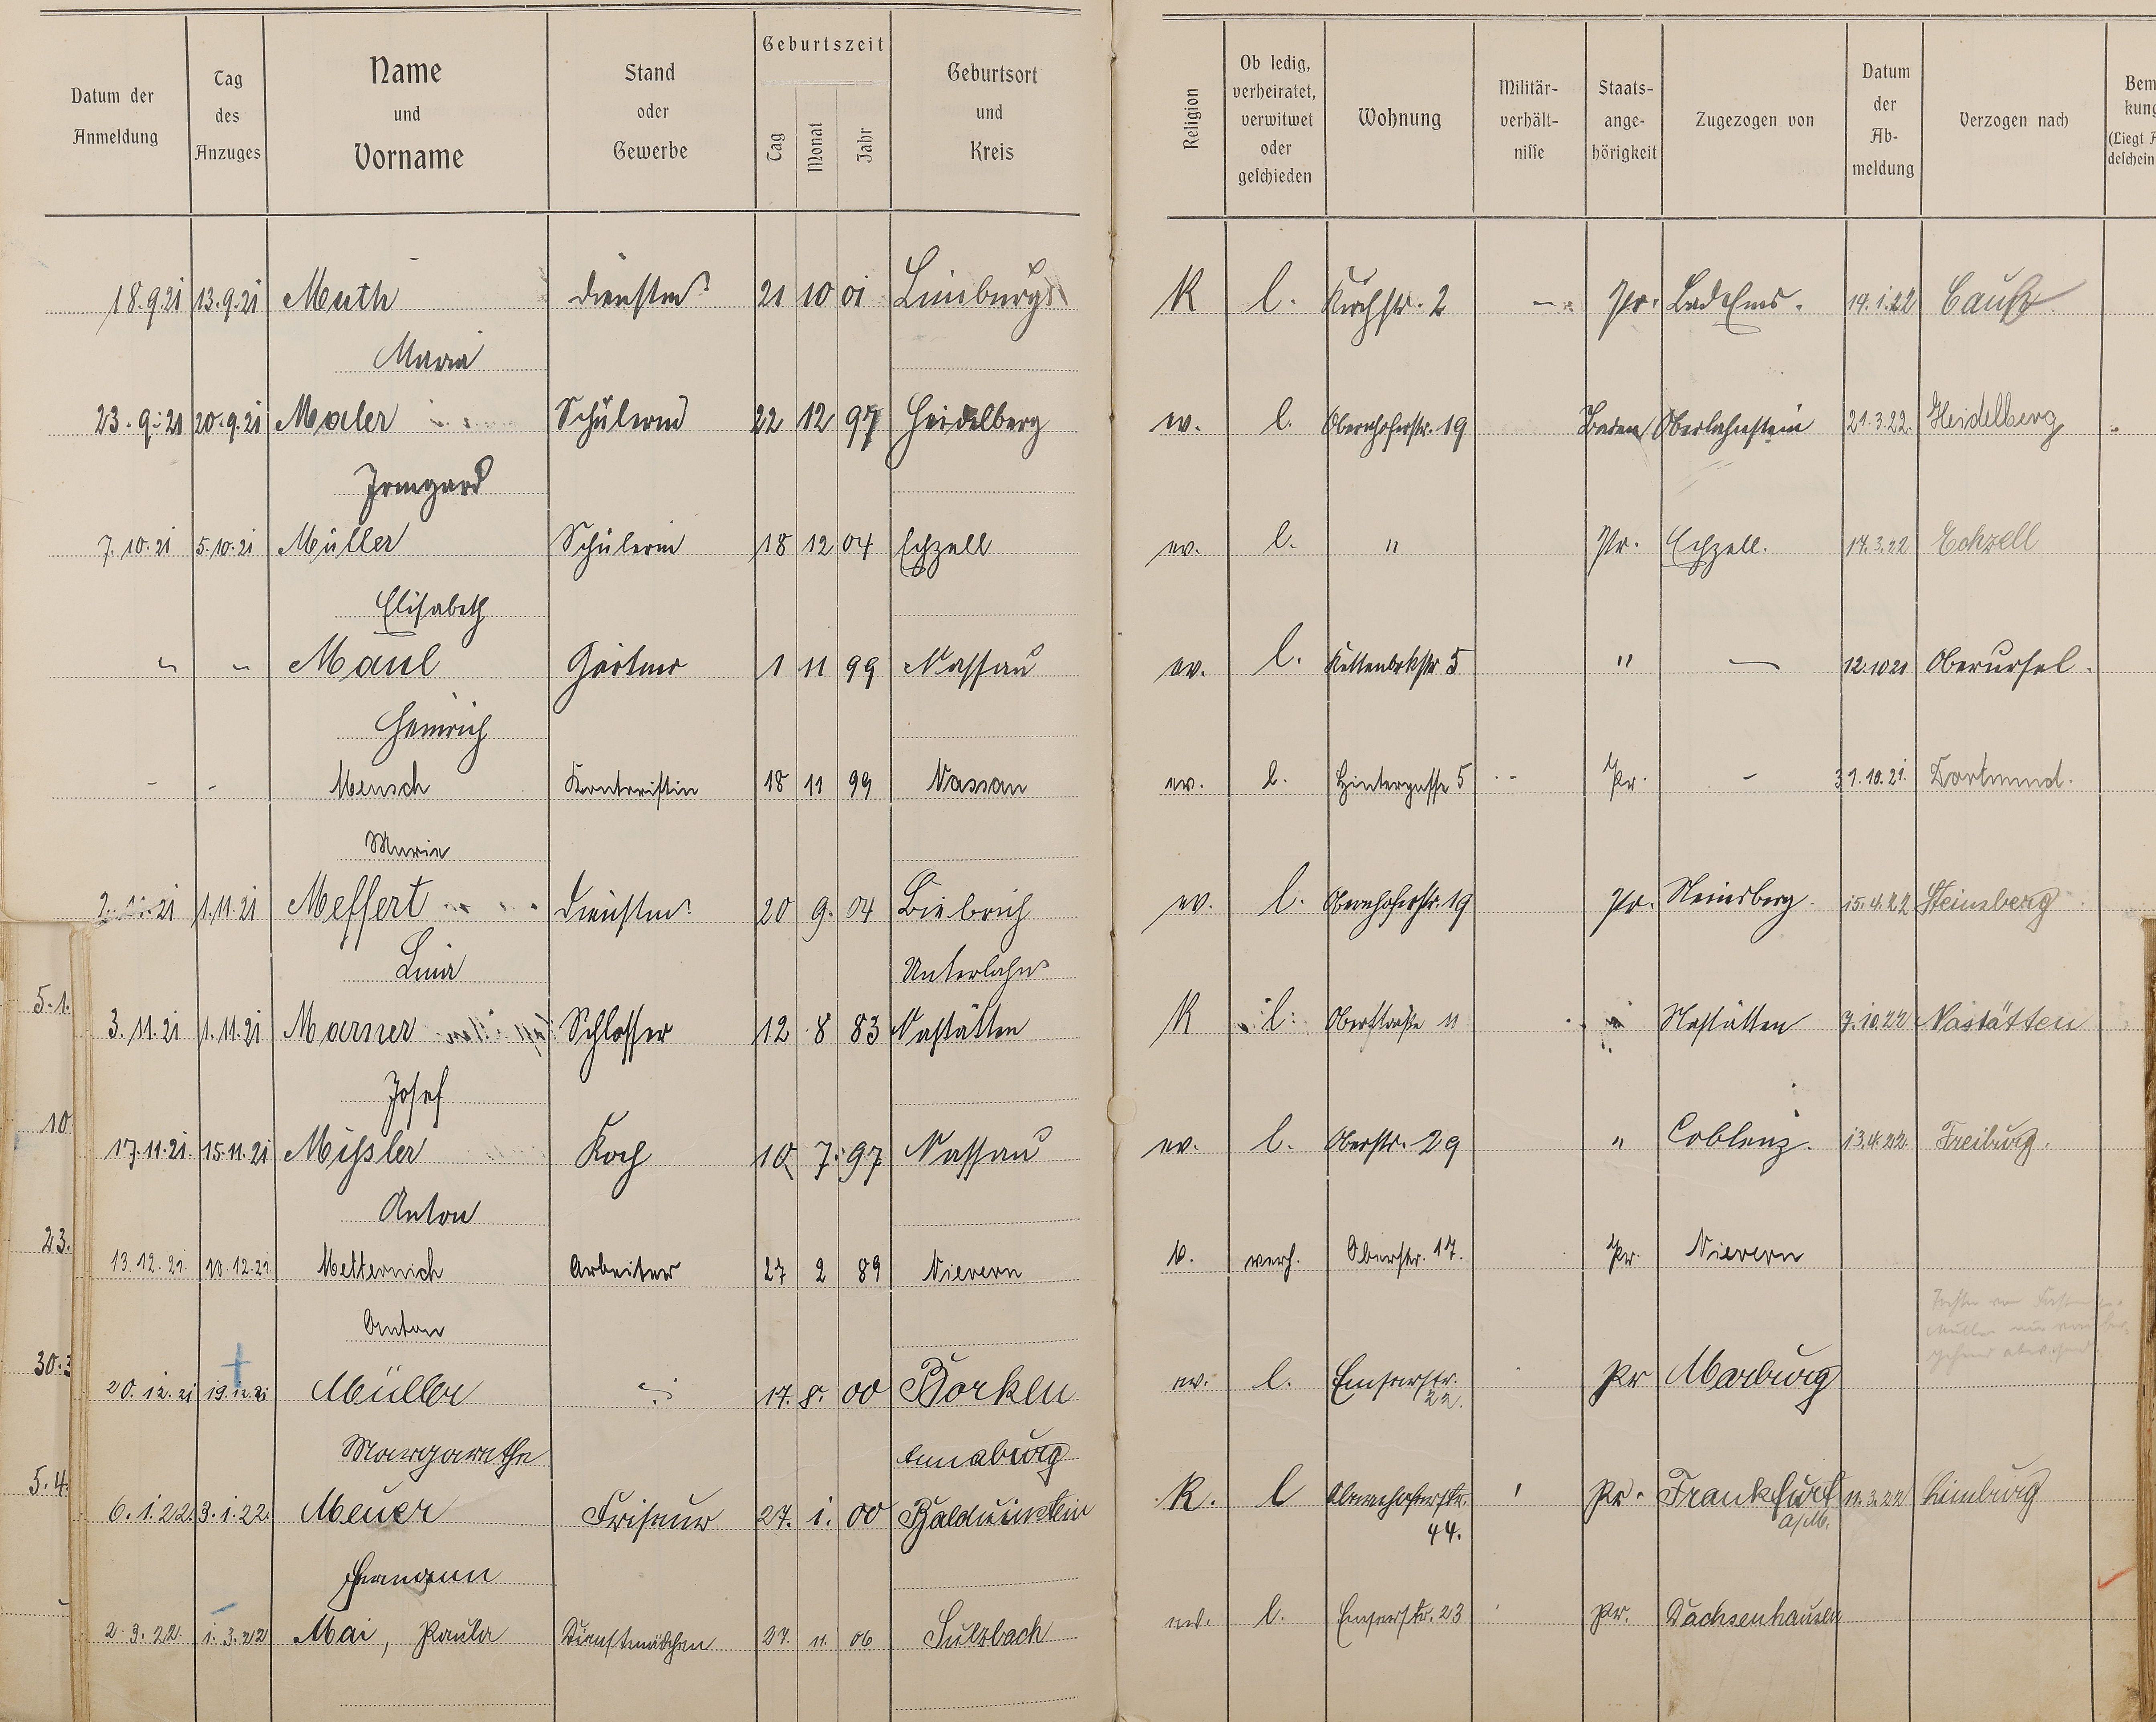 Datum der Anmeldung | Tag des Anzuges | Name und Vorname | Stand oder Gewerbe | Geburtszeit Tag Monat Jahr | Geburtsort und Kreis | Religion | Ob ledig, verheiratet, verwitwet oder geschieden | Wohnung | Militär-verhält-nisse | Staats-ange-hörigkeit | Zugezogen von | Datum der Ab-meldung | Verzogen nach
18.9.21 13.9.21 Muth Dienstm. 21 10 01 Limburg K l. Kirchstr. 2 - Pr. Bad Ems. 14.1.22 Caub
Maria
23.9.21 20.9.21 Maler Schülerin 22 12 97 Heidelberg ev. l. Obernhoferstr. 19 Baden Oberlahnstein 21.3.22. Heidelberg
Irmgard
7.10.21 5.10.21 Müller Schülerin 18 12 04 Echzell ev. l. " Pr. Echzell. 17.3.22 Echzell
Elisabeth
" " Maul Gärtner 1 11 99 Nassau ev. l. 5 " — 12.10 21 Oberursel.
Heinrich
- - Mensch Kontoristin 18 11 99 Nassau ev. l. Hintergasse 5 - Pr. - 31.10.21. Dortmund.
Marie
2. 21 1.11.21 Meffert Dienstm. 20 9. 04 Biebrich ev. l. Obernhoferstr. 19 Pr. Steinsberg. 15.4.22 Steinsberg
Lina Unterlahn
5.1.
3.11.21 1.11.21 Marner Schlosser 12 8 83 Nastätten K l. Oberstraße 11 " Nastätten 7.10.22 Nastätten
Josef
10.
17.11.21. 15.11.21 Mißler Koch 10 7. 97 Nassau ev. l. Oberstr. 29 " Coblenz. 13.4.22. Freiburg.
Anton
23.
13.12.21. 10.12.21. Metternich Arbeiter 27 2 89 Nievern k. verh. Oberstr. 17. Pr. Nievern
Anton
30.3
20.12.21 19.12.21 Müller 17. 8. 00 Borken ev. l. Emserstr. 22. Pr Marburg
Margarethe
5.4.
6.1.22. 3.1.22. Meuer Friseur 27. 1. 00 Balduinstein K. l Obernhoferstr. 44. Pr. Frankfurt a/M. 11.3.22 Limburg
Hermann
2.3.22. 1.3.22 Mai, Paula Dienstmädchen 27. 11. 06 Sulzbach ev. l. Emserstr. 23 Pr. Dachsenhausen